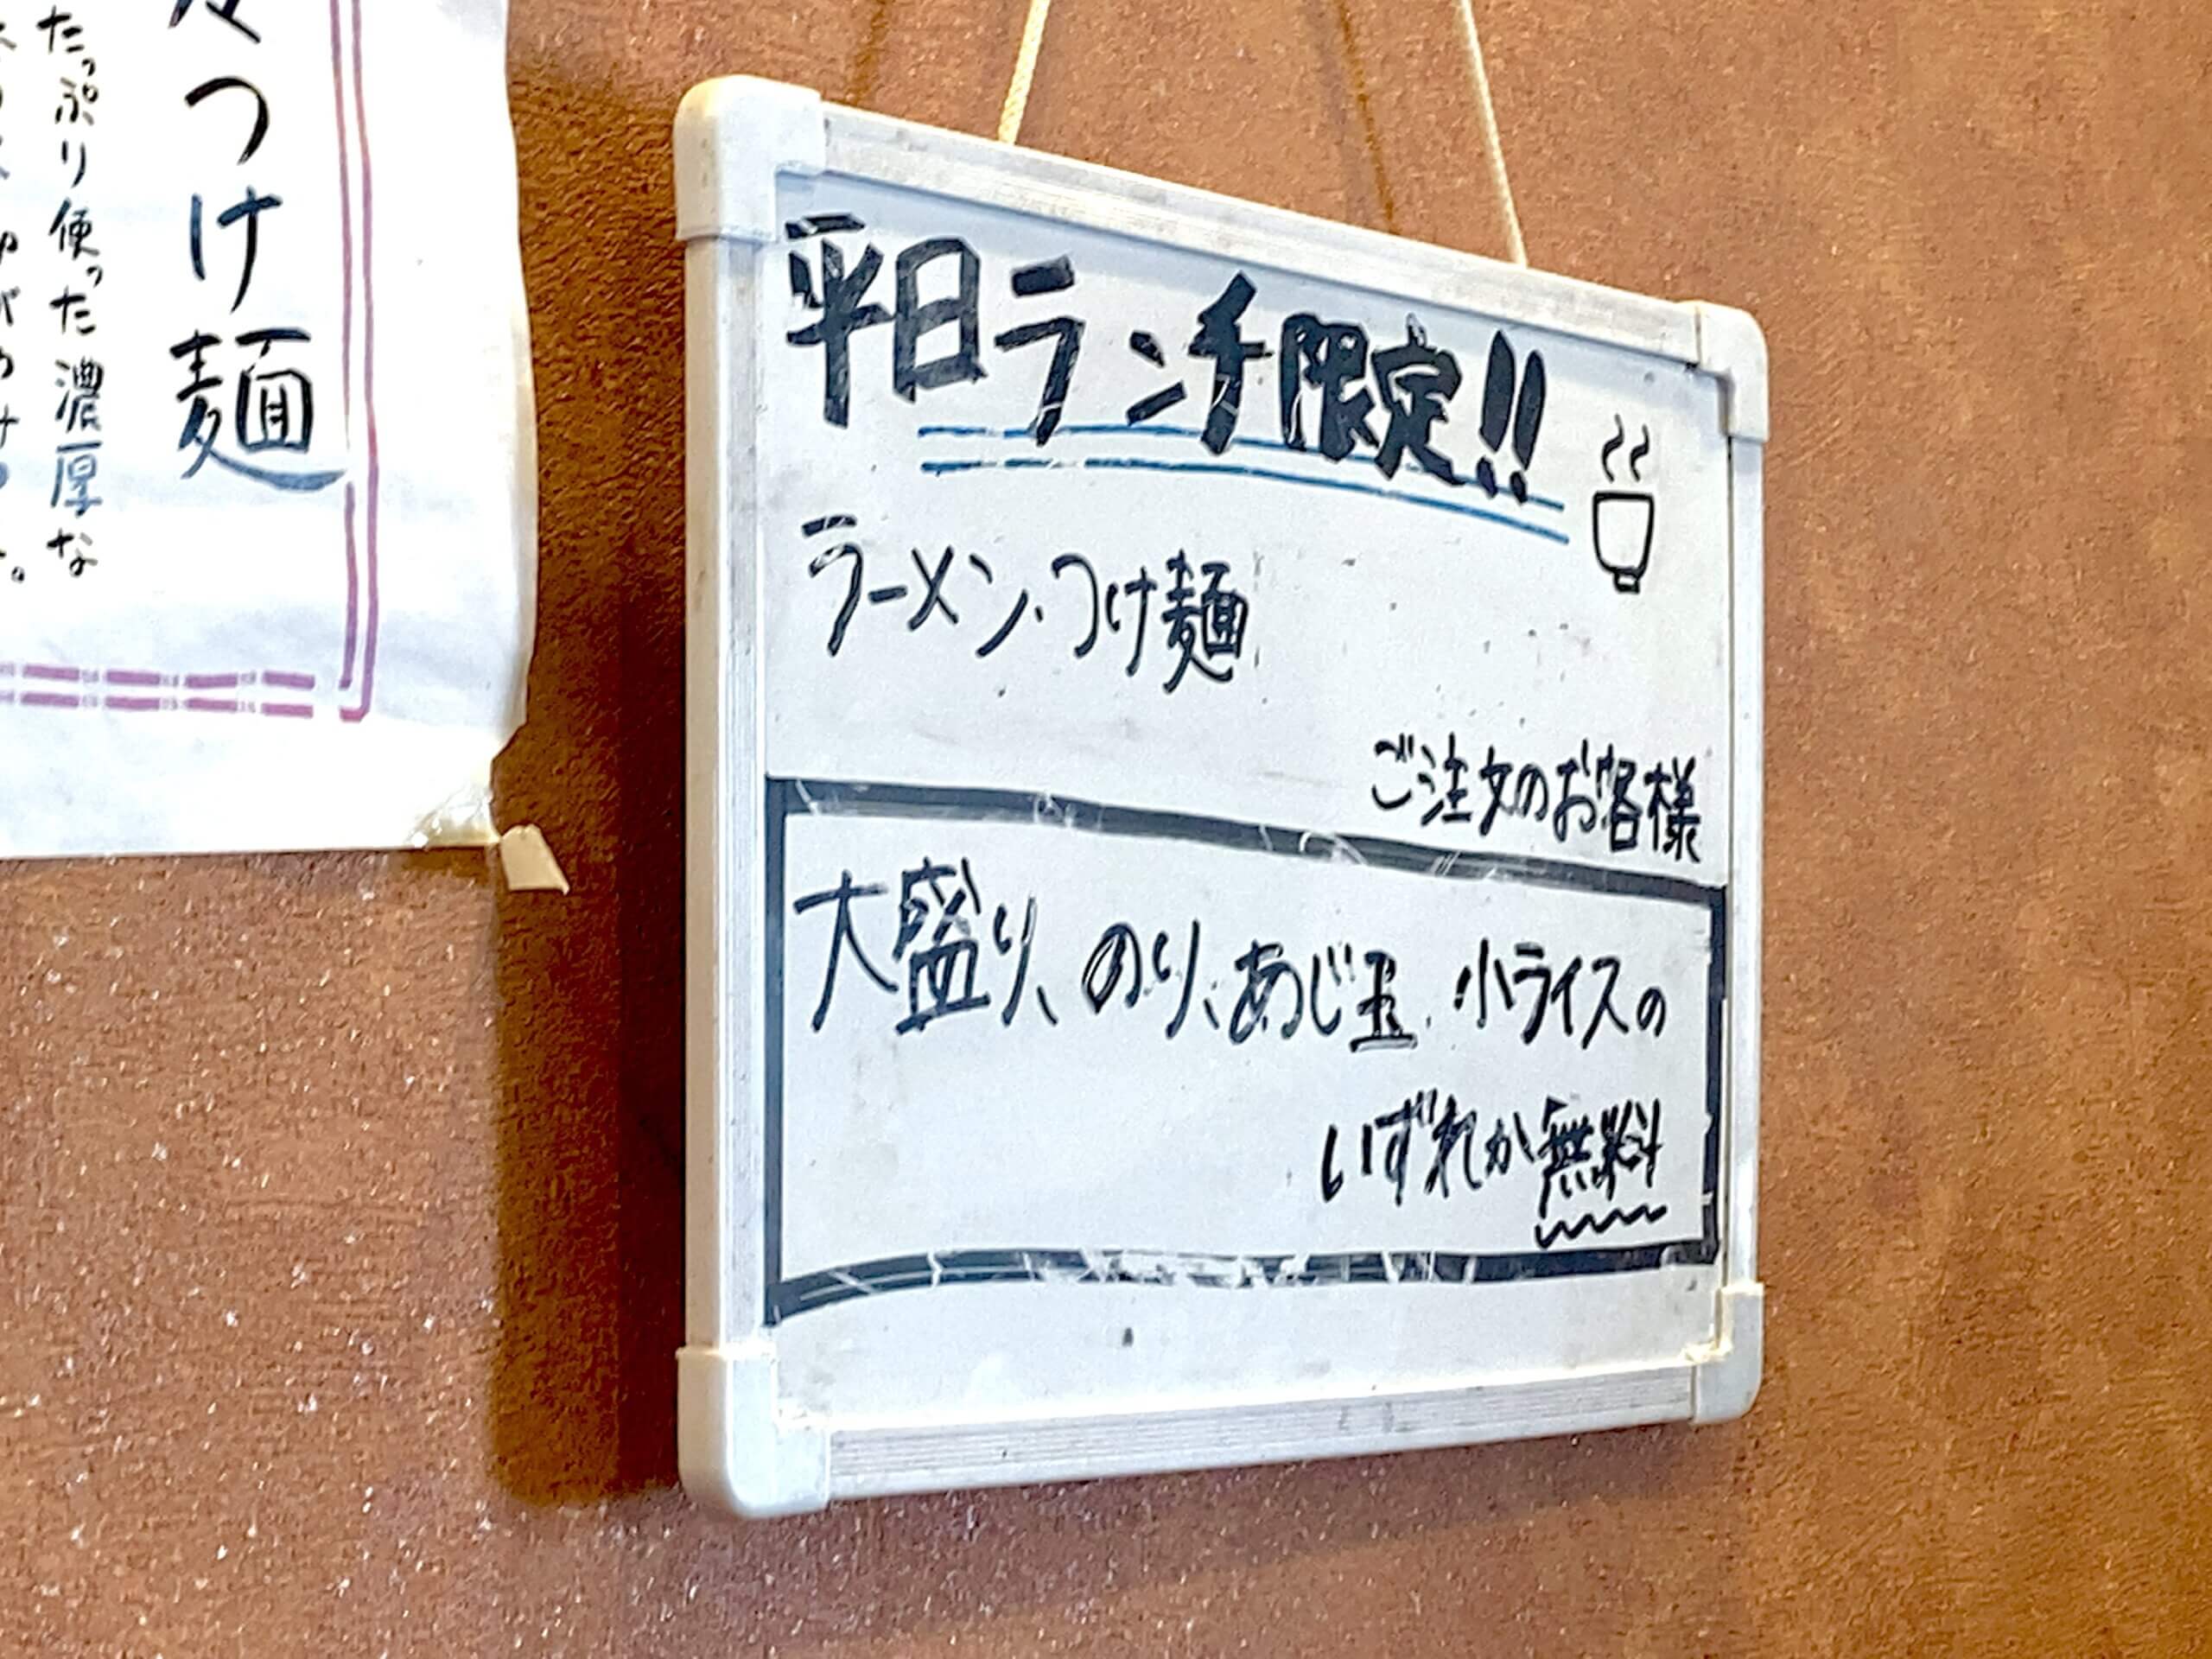 平日ランチ限定!!
ラーメン・つけ麺
ご注文のお客様
大盛り、のり、あじ玉、小ライスの
いずれか無料
つけ麺
たっぷり使った濃厚な